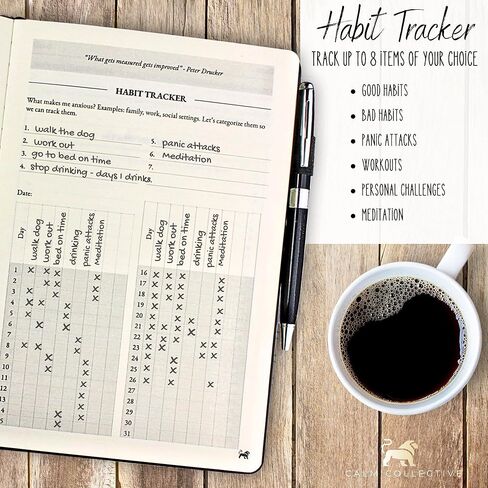 "What gets measured gets improved" - Peter Drucker
HABIT TRACKER
What makes me anxious? Examples: family, work, social settings. Let's categorize them so
we can track them.
1. walk the dog
2. work out
3. go to bed on time
4. stop drinking - days I drink.
5. panic attacks
6. Meditation
7.
Date:
Day walk dog work out bed on time drinking panic attacks meditation
Day walk dog work out bed on time drinking panic attacks Meditation
1
2
3
4
5
6
7
8
9
10
11
12
13
4
5
16
17
18
19
20
21
22
23
24
25
26
27
28
29
30
31
Habit Tracker
TRACK UP TO 8 ITEMS OF YOUR CHOICE
• GOOD HABITS
• BAD HABITS
• PANIC ATTACKS
• WORKOUTS
• PERSONAL CHALLENGES
• MEDITATION
CALM COLLECTIVE